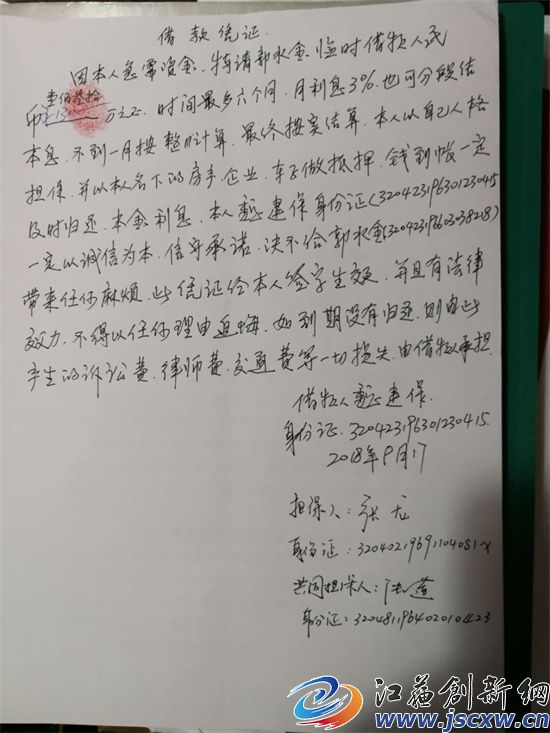 借款凭证
因本人急需资金,特请郭水金临时借款人民
壹佰叁拾
币 万元正,时间最多六个月,月利息3%,也可分段结
本息,不到一月按整月计算,最终按实结算,本人以自己人格
担保,并以本人名下的房产、企业、车子做抵押,钱到帐一定
及时归还,本金利息,本人 建保身份证(320423196301230415
一定以诚信为本,信守承诺,决不给郭水金(320423196603038218)
带来任何麻烦,此凭证经本人签字生效,并具有法律
效力,不得以任何理由返悔,如到期没有归还,则由此
产生的诉讼费、律师费、交通费等一切损失,由借款人承担.
借款人 建保.
身份证.320423196301230415.
2018年9月17
担保人:张
身份证:32040219691104081X
共同担保人:
身份证:320481196402010423
江苏创新网
www.jscxw.cn